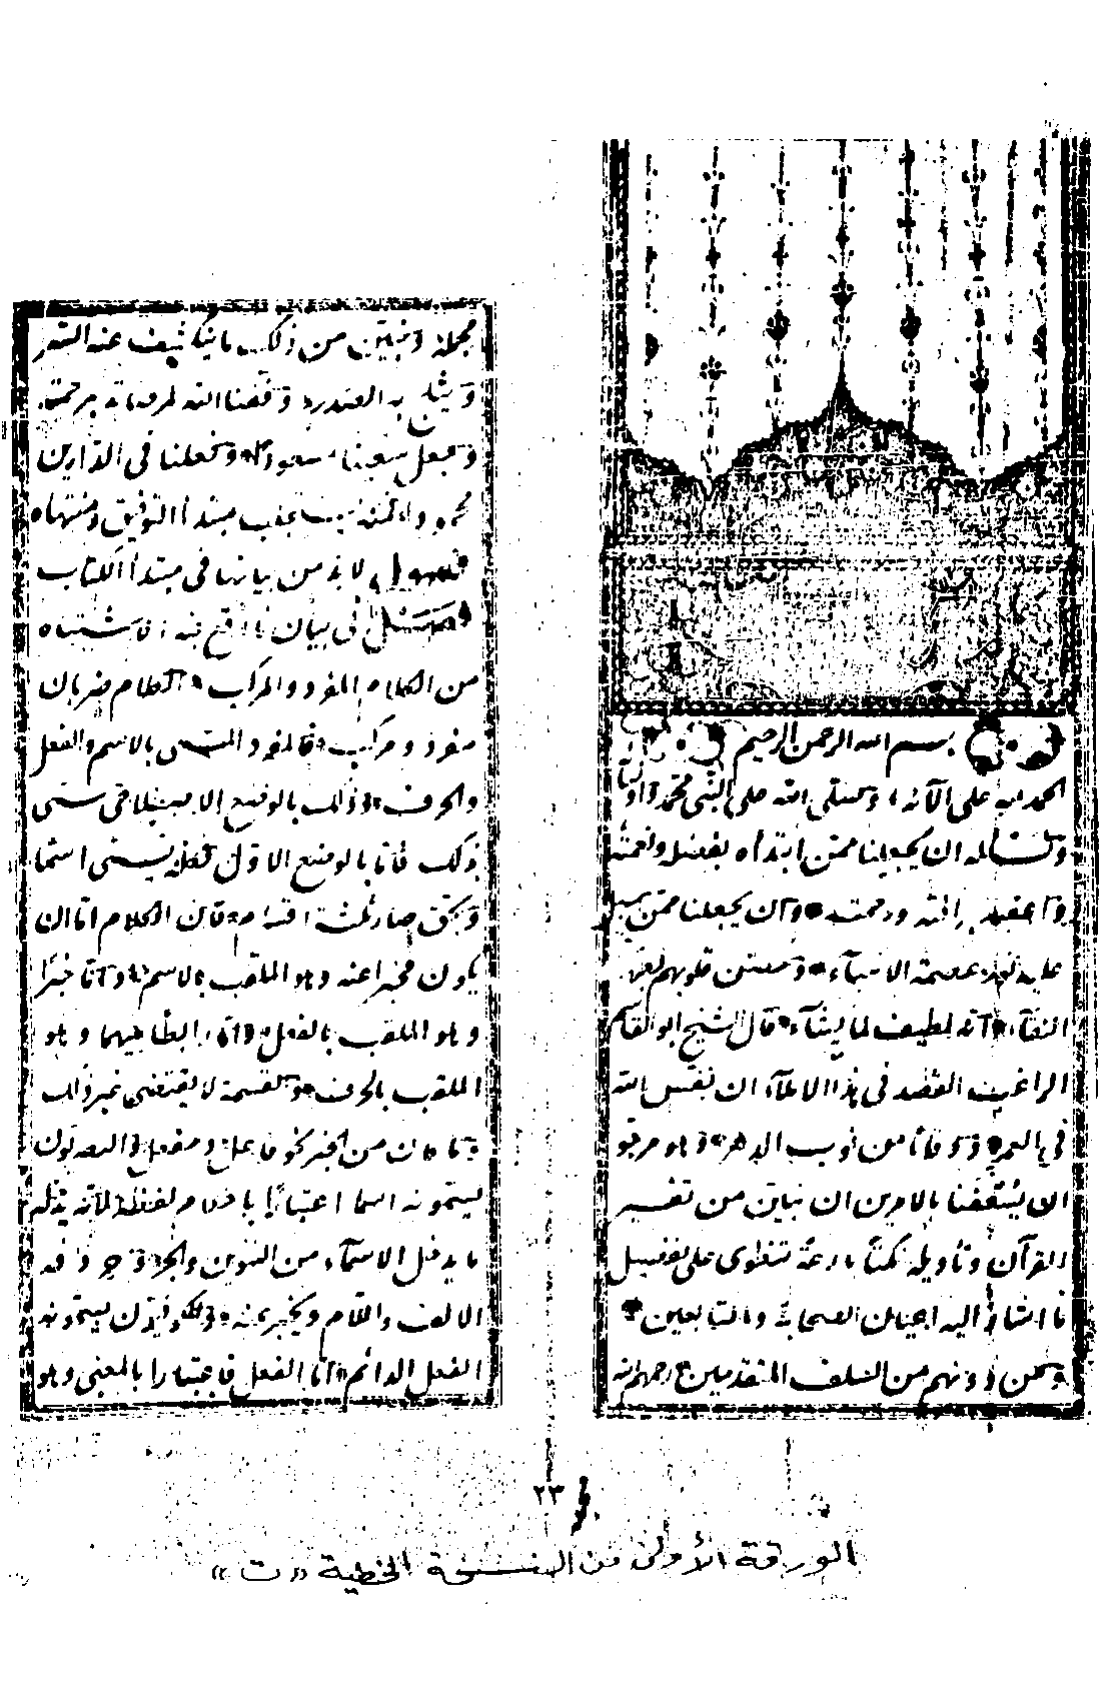 بسم الله الرحمن الرحيم
الحمد لله على آلائه وصلى الله على النبي محمد وأوليائه
ونسأله ان يجعلنا ممن ابتدأه بفضله ونعمته
ورحمته وان يجعلنا ممن
عصمة الانبياء وحصن قلوبهم
انه لطيف لما يشآء قال الشيخ ابو القاسم
الراغب القصد في هذا الاملآء ان نفس الله
في العمر ووقانا من نوب الدهر وهو مرجو
ان يسعفنا بالامرين ان نبين من تفسير
القرآن وتأويله نكتاً بارعة تنطوي على تفصيل
ما اشار اليه اعيان الصحابة والتابعين
ومن دونهم من السلف المتقدمين رحمهم الله
مجملة ونبين من ذلك ما ينكشف عنه السر
ويثلج به الصدر وفقنا الله لمرضاته برحمته
وجعل سعينا مسعودا وجعلنا في الدارين
مبتدأ التوفيق ومنتهاه
فصول لا بد من بيانها في مبتدأ الكتاب
فصل في بيان ما وقع فيه الاشتباه
من الكلام المفرد والمركب الكلام ضربان
مفرد ومركب فالمفرد المسمى بالاسم والفعل
والحرف وذلك بالوضع الاصطلاحي سمي
بذلك فاما بالوضع الاول فكله يسمى اسما
وبحق صار ثلثة اقسام فان الكلام اما ان
يكون مخبرا عنه وهو الملقب بالاسم واما خبرًا
وهو الملقب بالفعل واما رابطا بينهما وهو
الملقب بالحرف والقسمة لا يقتضي غير ذلك
وما كان من الخبر نحو فاعل ومفعل فالبصريون
يسمونه اسما اعتبارًا باحكام لفظية لانه يدخله
ما يدخل الاسمآء من التنوين والجر وحروفه
الالف واللام ويخبر عنه والكوفيون يسمونه
الفعل الدائم اما الفعل فاعتبارا بالمعنى وهو
٢٣
الورقة الأولى من النسخة الخطية «ت»